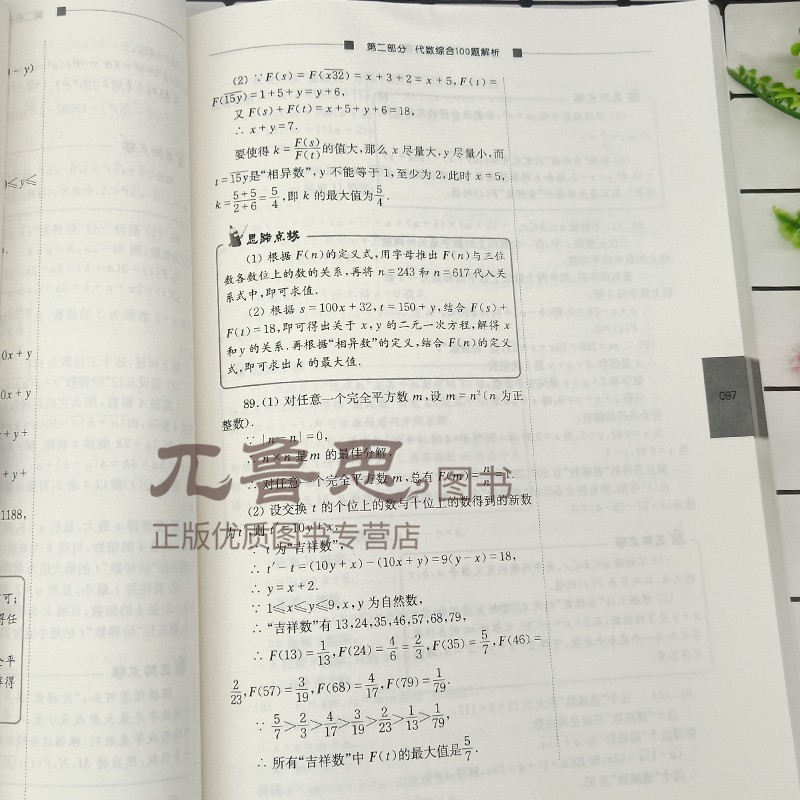 第二部分 代数综合100题解析
(2) ∵F(s)=F(x32)=x+3+2=x+5,F(t)=
F(15y)=1+5+y=y+6,
又F(s)+F(t)=x+5+y+6=18,
∴ x+y=7.
要使得k=F(s)/F(t)的值大,那么x尽量大,y尽量小,而
t=15y是“相异数”,y不能等于1,至少为2,此时x=5,
k=5+5/2+6=5/4,即k的最大值为5/4.
思路点拨
(1) 根据F(n)的定义式,用字母推出F(n)与三位
数各数位上的数的关系,再将n=243和n=617代入关
系式中,即可求值.
(2) 根据s=100x+32,t=150+y,结合F(s)+
F(t)=18,即可得出关于x,y的二元一次方程,解得x
和y的关系.再根据“相异数”的定义,结合F(n)的定义
式,即可求出k的最大值.
89.(1) 对任意一个完全平方数m,设m=n²(n为正
整数).
∵ |n-n|=0,
∴ n×n是m的最佳分解,
∴ 对任意一个完全平方数m,总有F(m)=n/n=1.
(2) 设交换t的个位上的数与十位上的数得到的新数
为t′,则t′=10y+x.
∵ t为“吉祥数”,
∴ t′-t=(10y+x)-(10x+y)=9(y-x)=18,
∴ y=x+2.
∵ 1≤x≤y≤9,x,y为自然数,
∴ “吉祥数”有13,24,35,46,57,68,79,
∴ F(13)=1/13,F(24)=4/6=2/3,F(35)=5/7,F(46)=
2/23,F(57)=3/19,F(68)=4/17,F(79)=1/79.
∵ 5/7>2/3>4/17>3/19>2/23>1/13>1/79,
∴ 所有“吉祥数”中F(t)的最大值是5/7.
097
兀鲁思图书
正版优质图书专营店